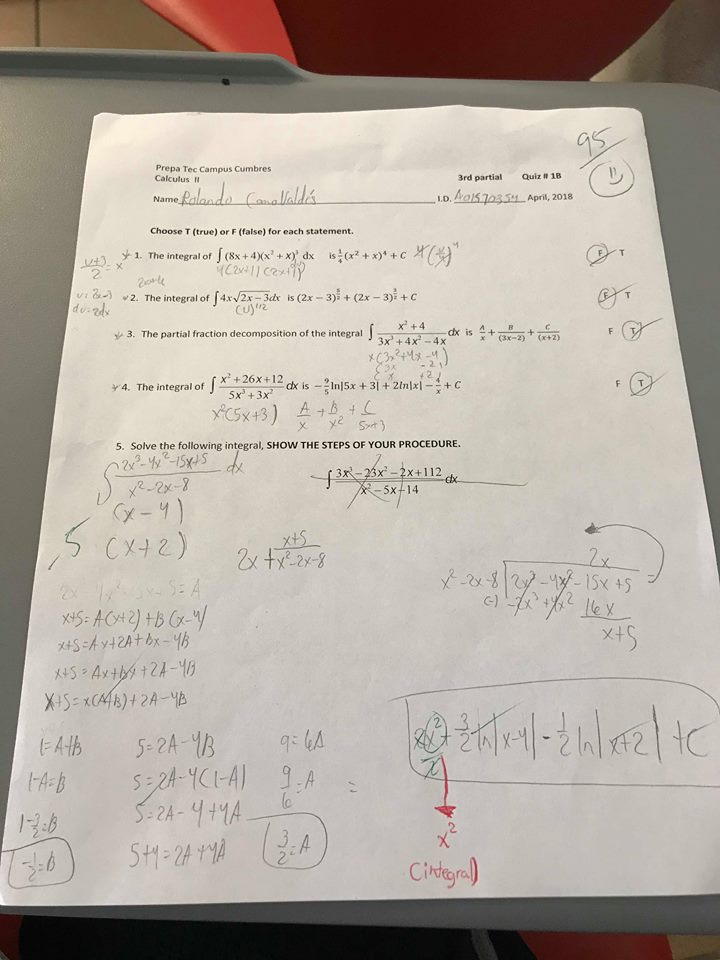 95
Prepa Tec Campus Cumbres
Calculus II
3rd partial Quiz # 1B
Name Rolando Cano Valdés I.D. A01570354 April, 2018
Choose T (true) or F (false) for each statement.
1. The integral of ∫(8x + 4)(x² + x)³ dx is ¼(x² + x)⁴ + C F T
u+3/2 = x
4(2x+1)
2. The integral of ∫4x√(2x − 3)dx is (2x − 3)^(5/2) + (2x − 3)^(3/2) + C F T
u=2x-3
du=2dx
(u)^(1/2)
3. The partial fraction decomposition of the integral ∫ (x² + 4)/(3x³ + 4x² − 4x) dx is A/x + B/(3x−2) + C/(x+2) F T
x(3x²+4x-4)
3x -2
x +2
4. The integral of ∫ (x² + 26x + 12)/(5x³ + 3x²) dx is −9/5 ln|5x + 3| + 2ln|x| − 4/x + C F T
x²(5x+3) A/x + B/x² + C/5x+3
5. Solve the following integral, SHOW THE STEPS OF YOUR PROCEDURE.
∫ (2x³-4x²-15x+5)/(x²-2x-8) dx
∫ (3x³ − 23x² − 2x + 112)/(x² − 5x − 14) dx
(x-4)
(x+2)
5
2x + (x+5)/(x²-2x-8)
2x
x²-2x-8 2x³-4x²-15x+5
(-) -2x³+4x² 16x
x+5
x+5=A(x+2)+B(x-4)
x+5=Ax+2A+Bx-4B
x+5=Ax+Bx+2A-4B
x+5=x(A+B)+2A-4B
1=A+B 5=2A-4B 9=6A
1-A=B 5=2A-4(1-A) 9/6=A
1-3/2=B 5=2A-4+4A
-1/2=B 5+4=2A+4A 3/2=A
=
2x²/2 + 3/2 ln|x-4| - 1/2 ln|x+2| + C
x²
(integral)